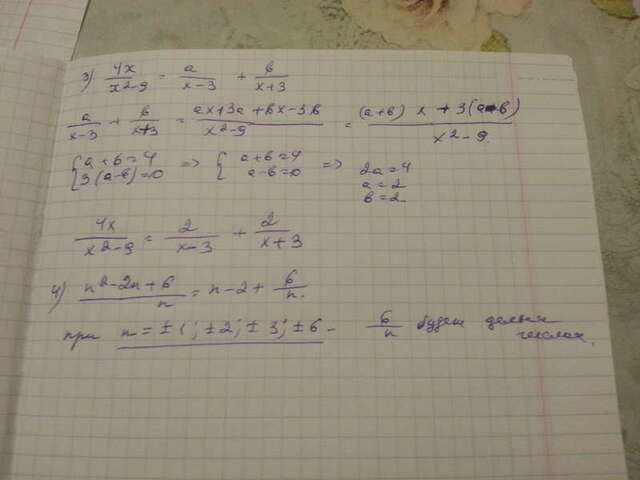 3) 4x/(x²-9) = a/(x-3) + b/(x+3)
a/(x-3) + b/(x+3) = (ax+3a+bx-3b)/(x²-9) = ((a+b)x+3(a-b))/(x²-9).
{a+b=4; 3(a-b)=0 => {a+b=4; a-b=0 => 2a=4
a=2
b=2.
4x/(x²-9) = 2/(x-3) + 2/(x+3)
4) (n²-2n+6)/n = n-2+6/n.
при n=±1; ±2; ±3; ±6 - 6/n будет целым числом.